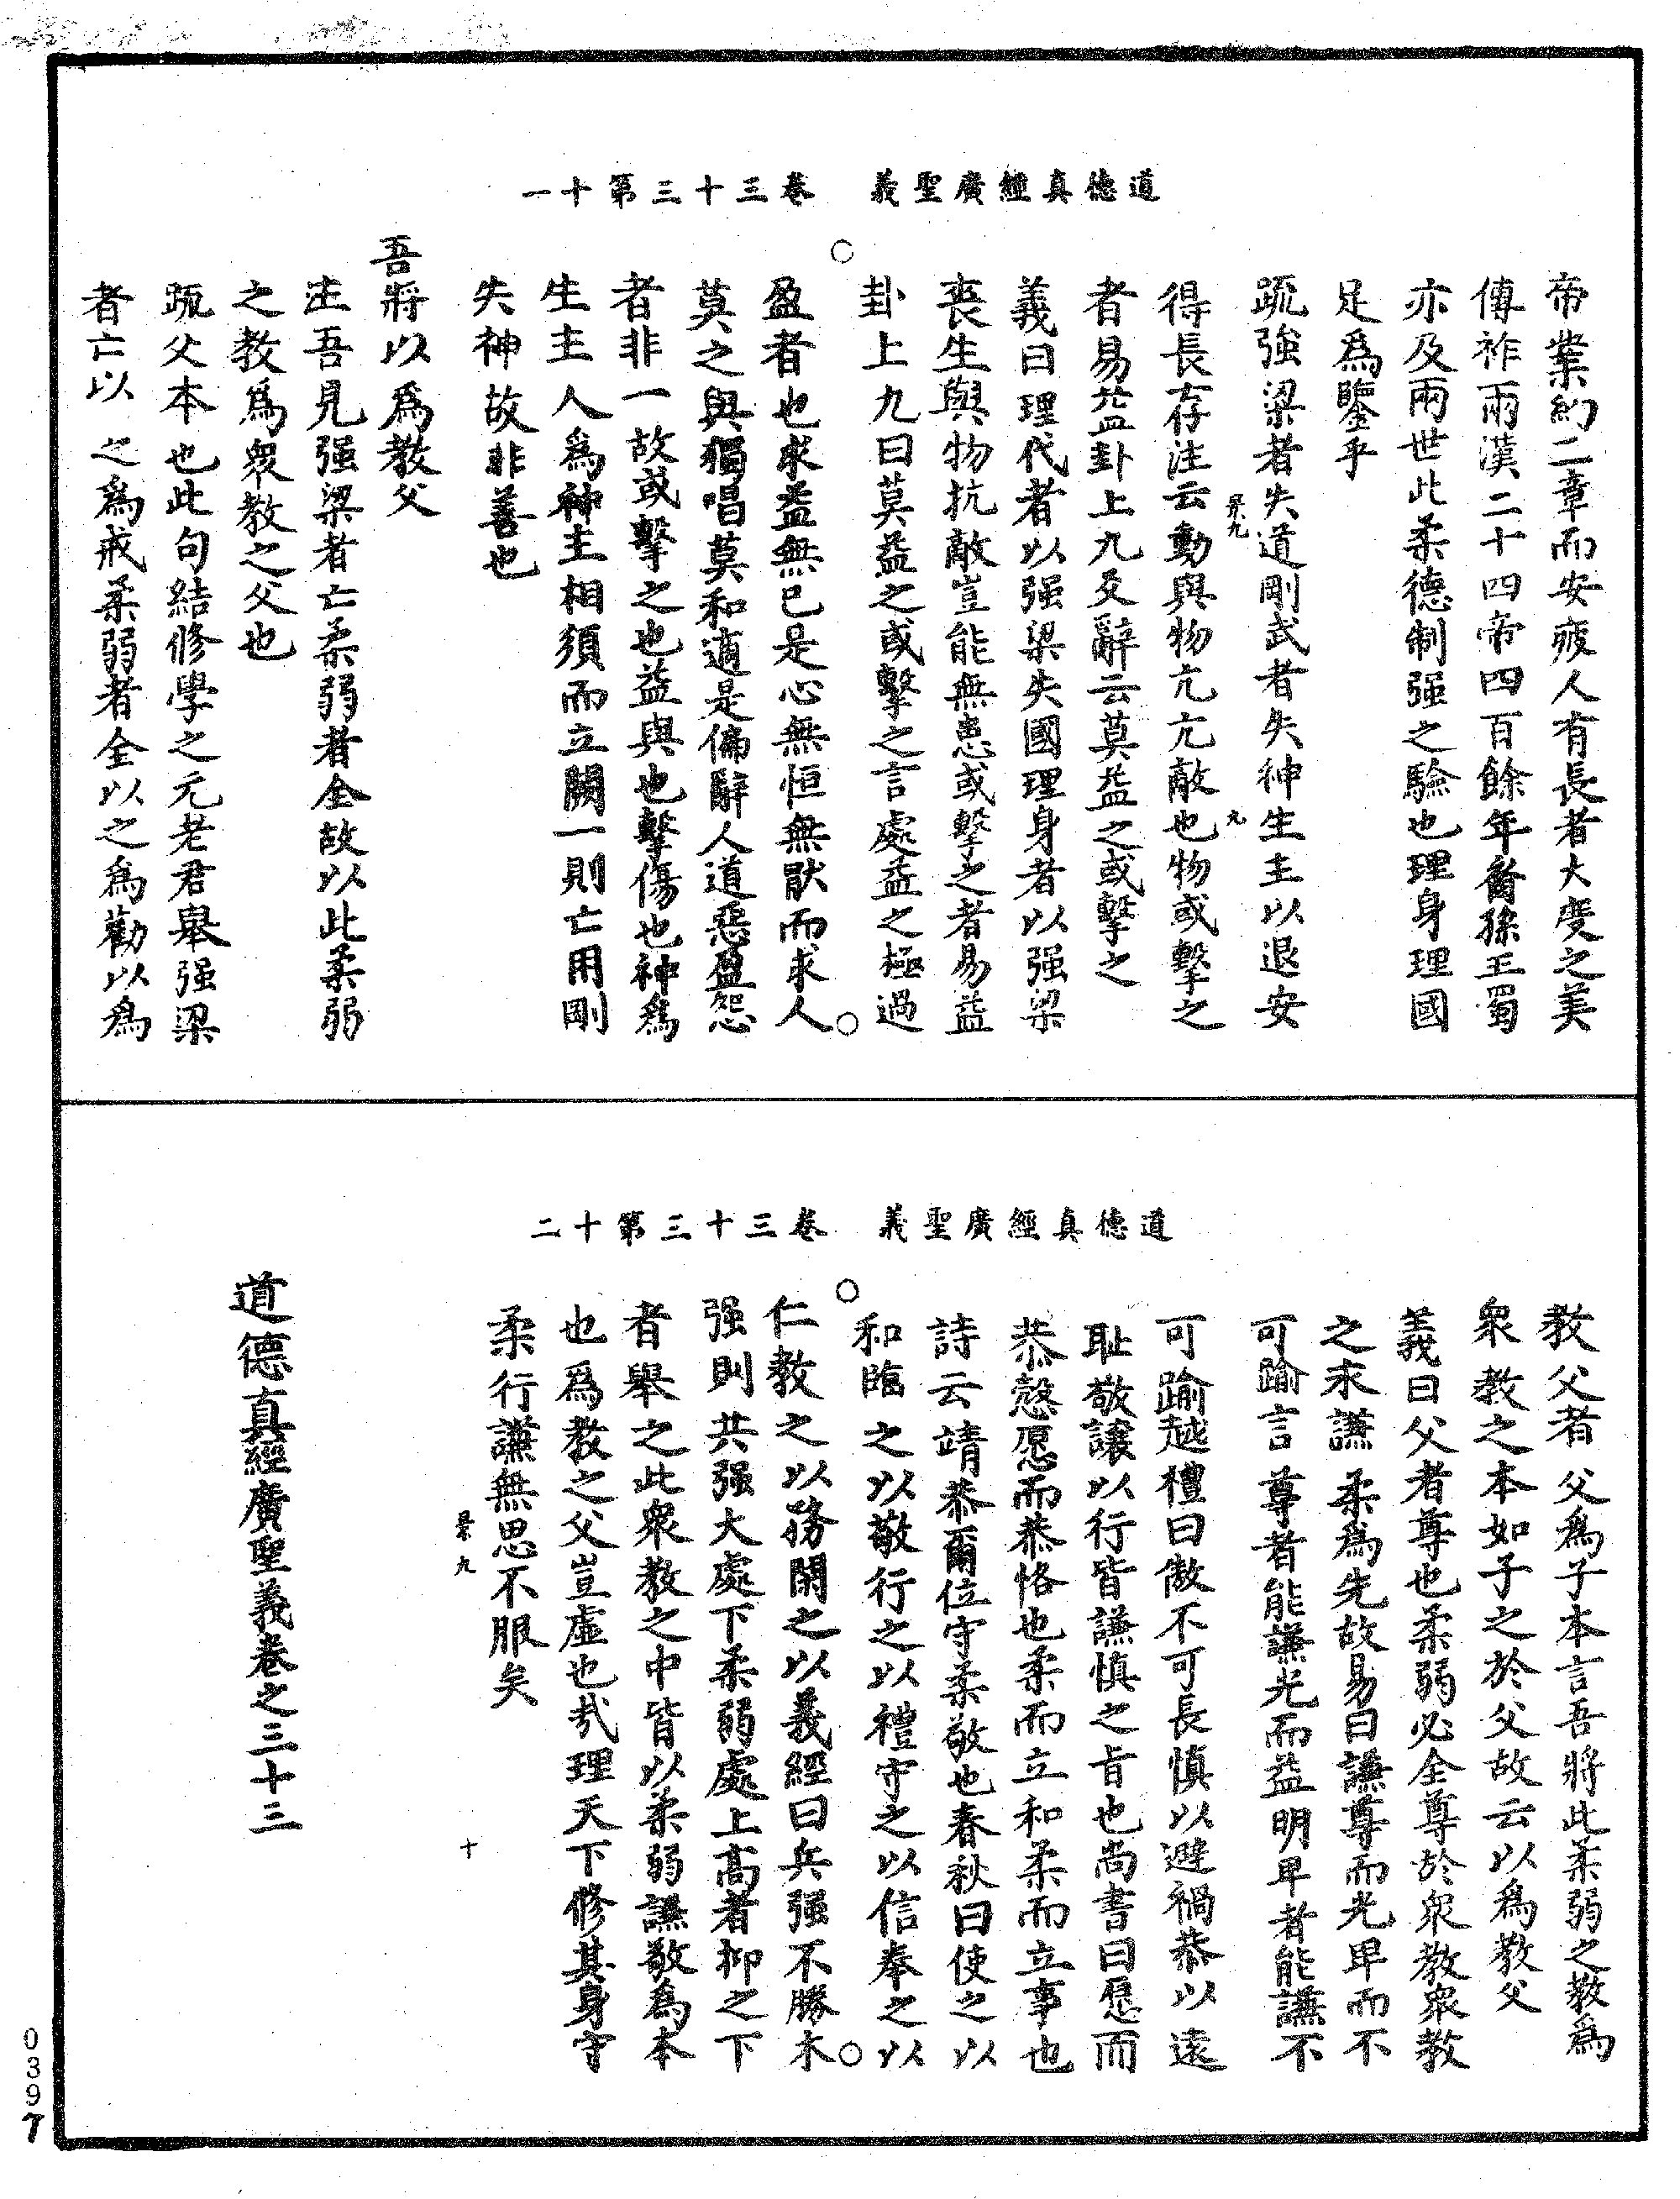 道德真經廣聖義　卷三十三第十一
帝業約二章而安疲人有長者大度之美
傳祚兩漢二十四帝四百餘年裔孫王蜀
亦及兩世此柔德制强之驗也理身理國
足爲鑒乎
疏強梁者失道剛武者失神生主以退安
景九
九
得長存注云動與物亢亢敵也物或擊之
者易益卦上九爻辭云莫益之或擊之
義曰理代者以强梁失國理身者以强梁
喪生與物抗敵豈能無患或擊之者易益
卦上九曰莫益之或擊之言處益之極過
盈者也求益無已是心無恒無猒而求人
莫之與獨唱莫和適是偏辭人道惡盈怨
者非一故或擊之也益與也擊傷也神爲
生主人爲神主相須而立闕一則亡用剛
失神故非善也
吾將以爲教父
注吾見强梁者亡柔弱者全故以此柔弱
之教爲衆教之父也
疏父本也此句結修學之元老君舉强梁
者亡以之爲戒柔弱者全以之爲勸以爲
道德真經廣聖義　卷三十三第十二
教父者父爲子本言吾將此柔弱之教爲
衆教之本如子之於父故云以爲教父
義曰父者尊也柔弱必全尊於衆教衆教
之求謙柔爲先故易曰謙尊而光卑而不
可踰言尊者能謙光而益明卑者能謙不
可踰越禮曰敖不可長慎以避禍恭以遠
耻敬讓以行皆謙慎之旨也尚書曰愿而
恭愨愿而恭恪也柔而立和柔而立事也
詩云靖恭爾位守柔敬也春秋曰使之以
和臨之以敬行之以禮守之以信奉之以
仁教之以務閑之以義經曰兵强不勝木
强則共强大處下柔弱處上高者抑之下
者舉之此衆教之中皆以柔弱謙敬爲本
也爲教之父豈虛也哉理天下修其身守
柔行謙無思不服矣
景九
十
道德真經廣聖義卷之三十三
0397